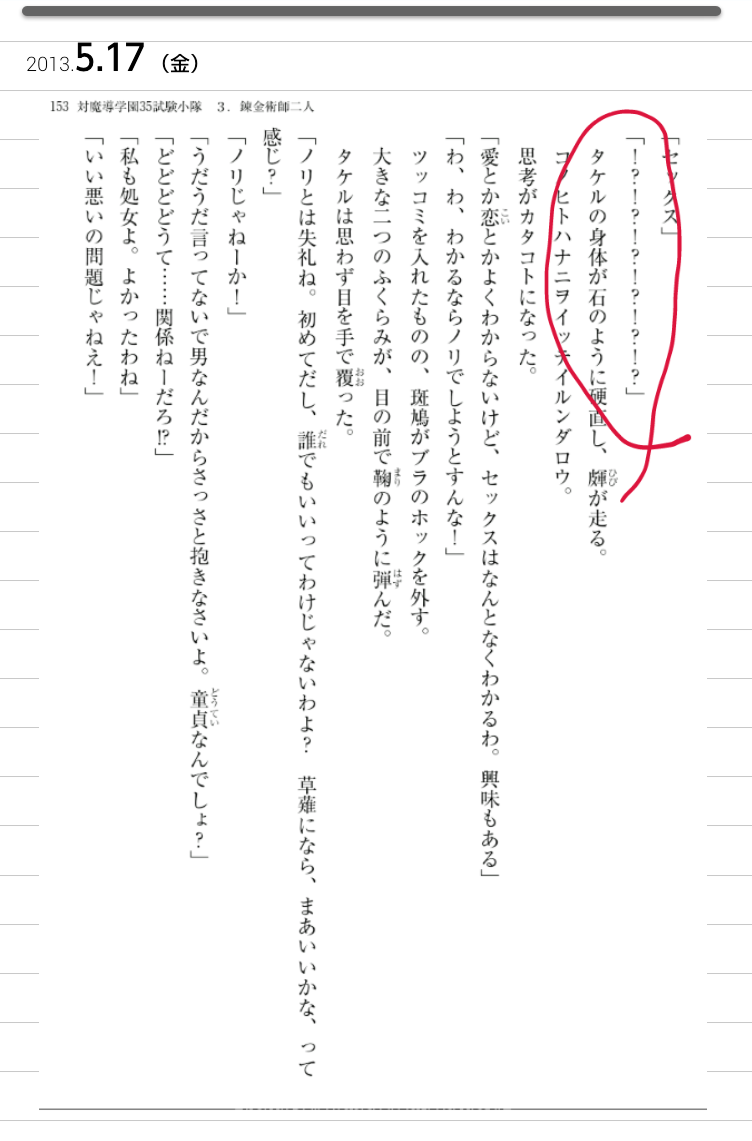 2013.5.17（金）
153 対魔導学園35試験小隊　3．錬金術師二人
「セックス」
「！？！？！？！？！？！？」
タケルの身体が石のように硬直し、皹が走る。
コノヒトハナニヲイッテイルンダロウ。
思考がカタコトになった。
「愛とか恋とかよくわからないけど、セックスはなんとなくわかるわ。興味もある」
「わ、わ、わかるならノリでしようとすんな！」
ツッコミを入れたものの、斑鳩がブラのホックを外す。
大きな二つのふくらみが、目の前で鞠のように弾んだ。
タケルは思わず目を手で覆った。
「ノリとは失礼ね。初めてだし、誰でもいいってわけじゃないわよ？　草薙になら、まあいいかな、って
感じ？」
「ノリじゃねーか！」
「うだうだ言ってないで男なんだからさっさと抱きなさいよ。童貞なんでしょ？」
「どどどどうて……関係ねーだろ!?」
「私も処女よ。よかったわね」
「いい悪いの問題じゃねえ！」